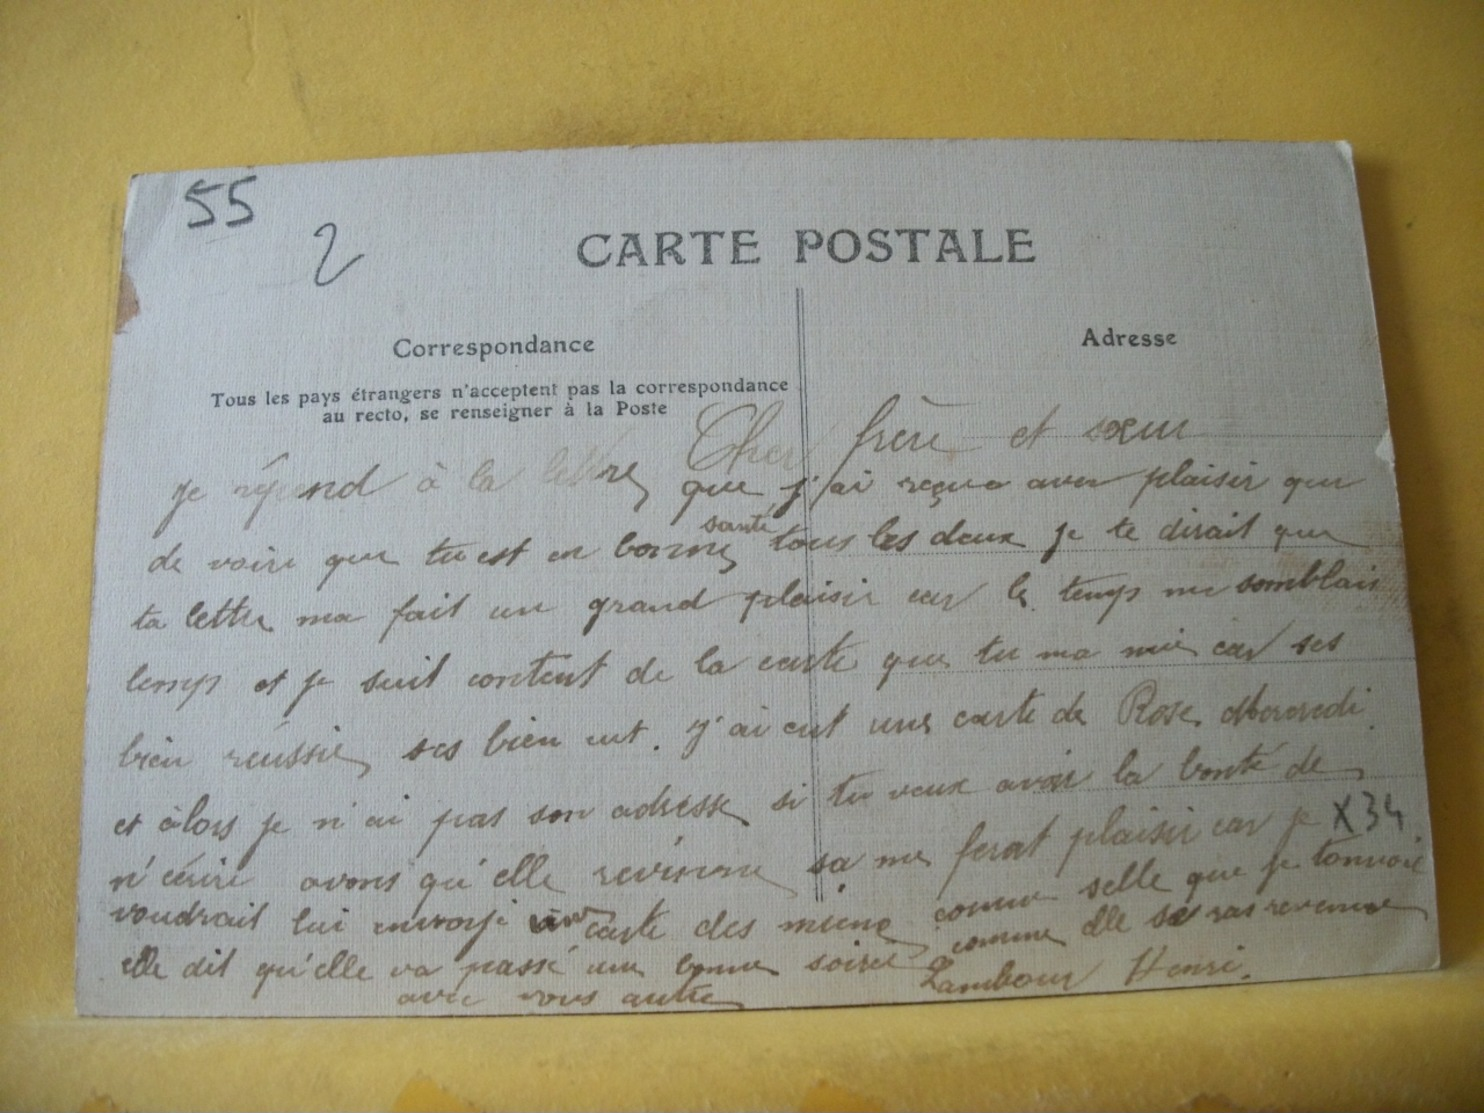 55
2
CARTE POSTALE
Correspondance
Adresse
Tous les pays étrangers n'acceptent pas la correspondance
au recto, se renseigner à la Poste
Cher frère et sœur
Je répond à la lettre que j'ai reçue avec plaisir que
de voire que tu est en bonne santé tous les deux je te dirait que
ta lettre ma fait un grand plaisir car le temp me semblai
lemp et je suit content de la carte que tu ma mie car ses
bien réussie ses bien cut. J'ai eut une carte de Rose Mercredi
et alors je n'ai pas son adresse si tu veux avoir la bonté de
m'écrire avons qu'elle revienne sa me ferat plaisir car je X34
voudrait lui envoyé une carte des miene comme selle que je tanvoie
elle dit qu'elle va passé une bonne soiree comme elle seras revenue
avec vous autre
Lambour Henri.